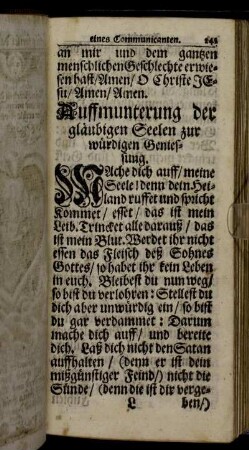 eines Communicanten. 241
an mir und dem gantzen
menschlichen Geschlechte erwie-
sen hast/ Amen/ O Christe JE-
su/ Amen/ Amen.
Auffmunterung der
gläubigen Seelen zur
würdigen Genies-
sung.
WAche dich auff/ meine
Seele! denn dein Hei-
land ruffet und spricht
Kommet/ esset/ das ist mein
Leib. Trincket alle darauß/ das
ist mein Blut. Werdet ihr nicht
essen das Fleisch deß Sohnes
Gottes/ so habet ihr kein Leben
in euch. Bleibest du nun weg/
so bist du verlohren: Stellest du
dich aber unwürdig ein/ so bist
du gar verdammet: Darum
mache dich auff/ und bereite
dich. Laß dich nicht den Satan
auffhalten/ (denn er ist dein
mißgünstiger Feind/) nicht die
Sünde/ (denn die ist dir verge-
L ben/)